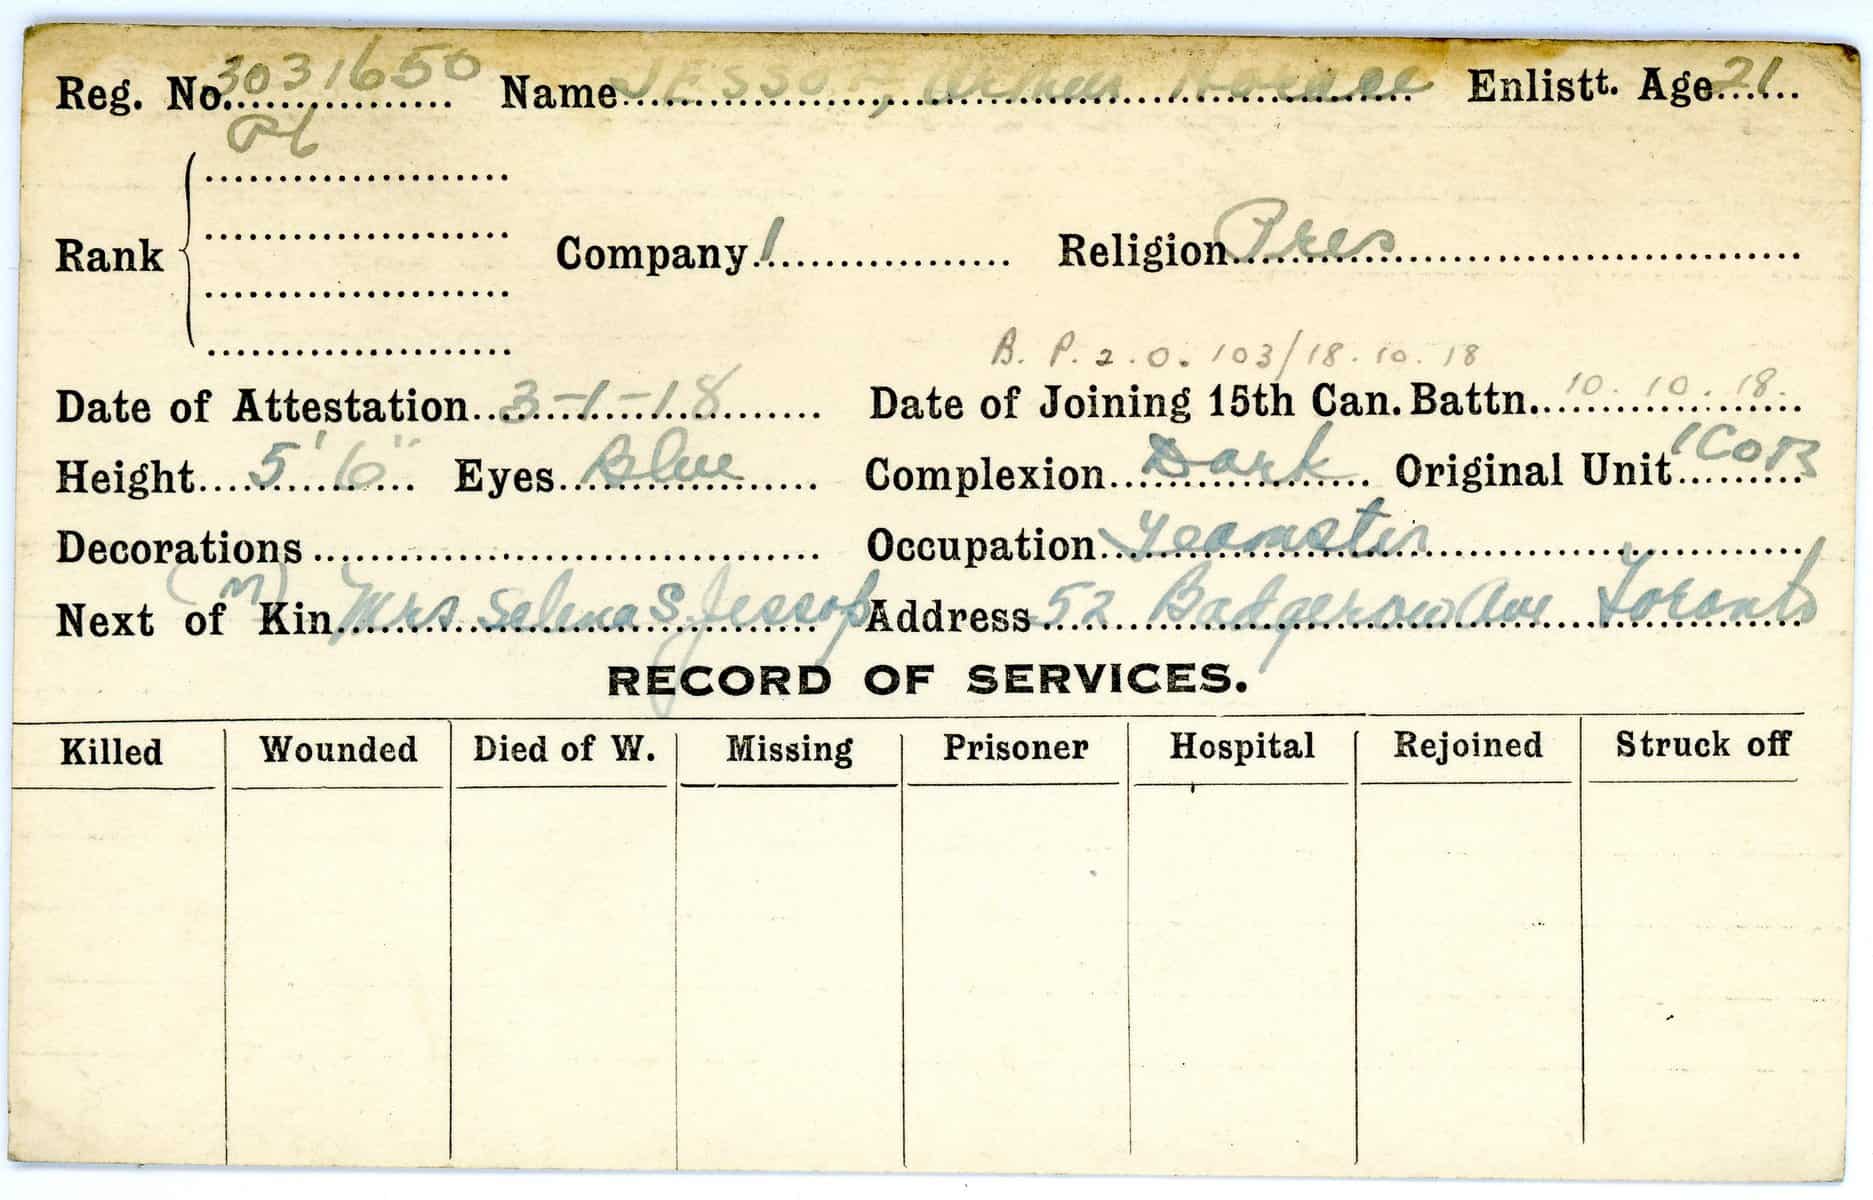 Reg. No. 3031650 Name JESSOP, Arthur Horace Enlistt. Age 21
Pt
Rank Company 1 Religion Pres
B. P. 2. O. 103/18.10.18
Date of Attestation 3-1-18 Date of Joining 15th Can. Battn. 10.10.18.
Height 5' 6" Eyes Blue Complexion Dark Original Unit 1COR
Decorations Occupation Teamster
(m)
Next of Kin Mrs Selena S. Jessop Address 52 Badgerow Ave Toronto
RECORD OF SERVICES.
Killed Wounded Died of W. Missing Prisoner Hospital Rejoined Struck off